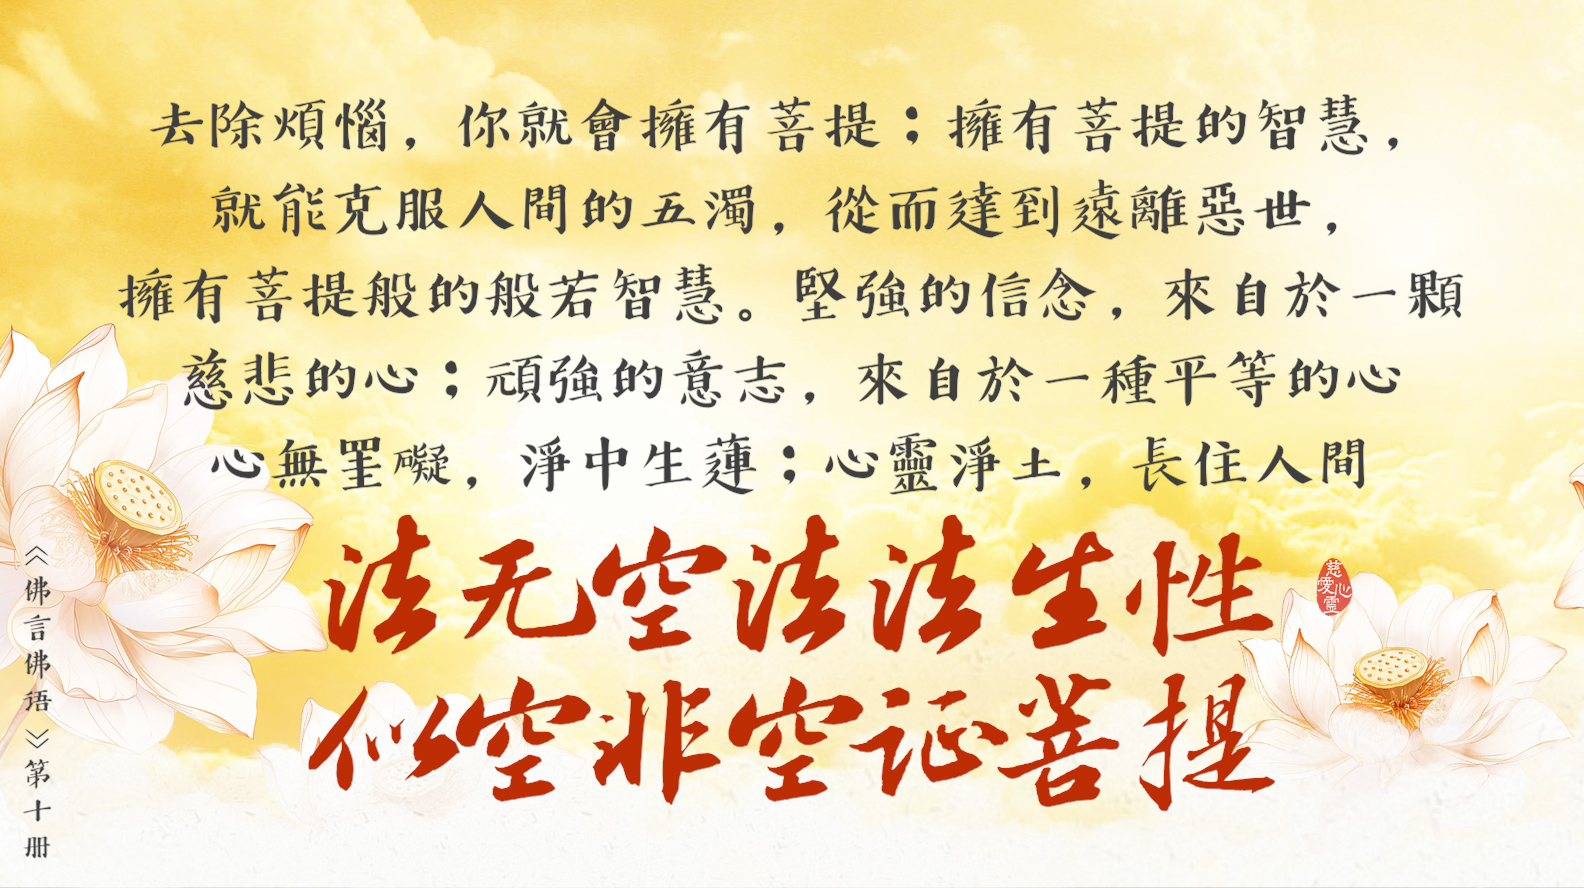 去除煩惱，你就會擁有菩提；擁有菩提的智慧，
就能克服人間的五濁，從而達到遠離惡世，
擁有菩提般的般若智慧。堅強的信念，來自於一顆
慈悲的心；頑強的意志，來自於一種平等的心
心無罣礙，淨中生蓮；心靈淨土，長住人間
法无空法法生性
似空非空证菩提
慈愛心靈
《佛言佛语》第十册